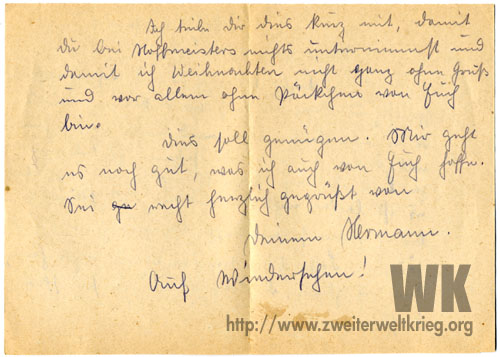 Ich teile dir dies kurz mit, damit
du bei Hoffmeisters nichts unternimmst und
damit ich Weihnachten nicht ganz ohne Gruß
und vor allem ohne Päckchen von Euch
bin.
Dies soll genügen. Mir geht
es noch gut, was ich auch von Euch hoffe.
Sei recht herzlich gegrüßt von
Deinem Hermann.
Auf Wiedersehen!
WK
http://www.zweiterweltkrieg.org